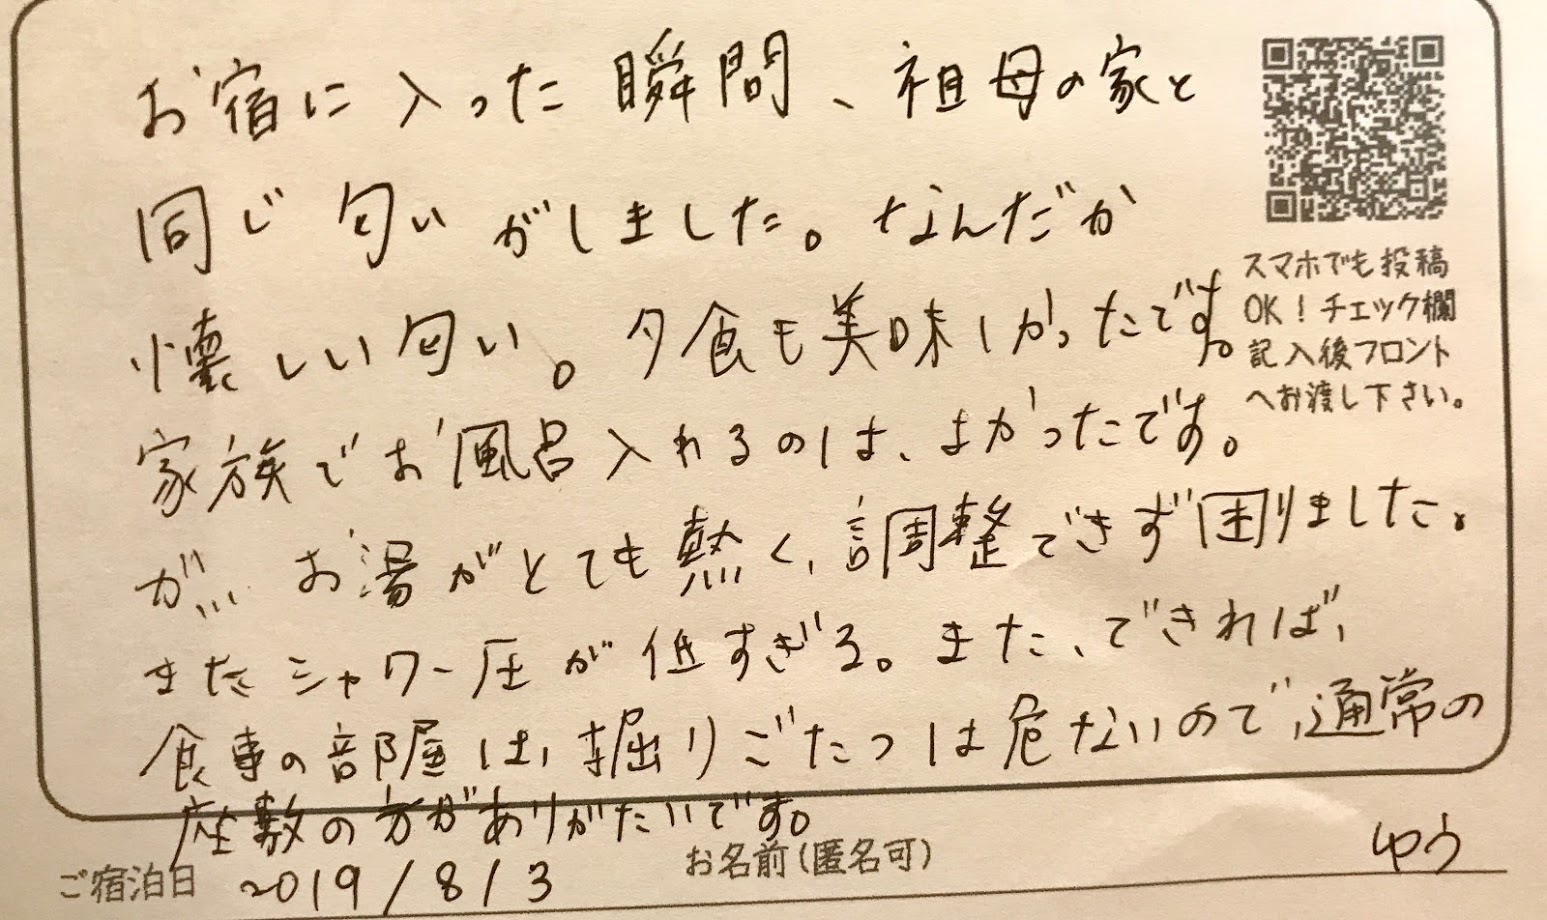 お宿に入った瞬間、祖母の家と
同じ匂いがしました。なんだか
懐しい匂い。夕食も美味しかったです。
家族でお風呂入れるのは、よかったです。
が… お湯がとても熱く、調整できず困りました。
またシャワー圧が低すぎる。また、できれば、
食事の部屋は、掘りごたつは危ないので、通常の
座敷の方がありがたいです。
スマホでも投稿
OK!チェック欄
記入後フロント
へお渡し下さい。
ご宿泊日 2019/8/3 お名前(匿名可) ゆう